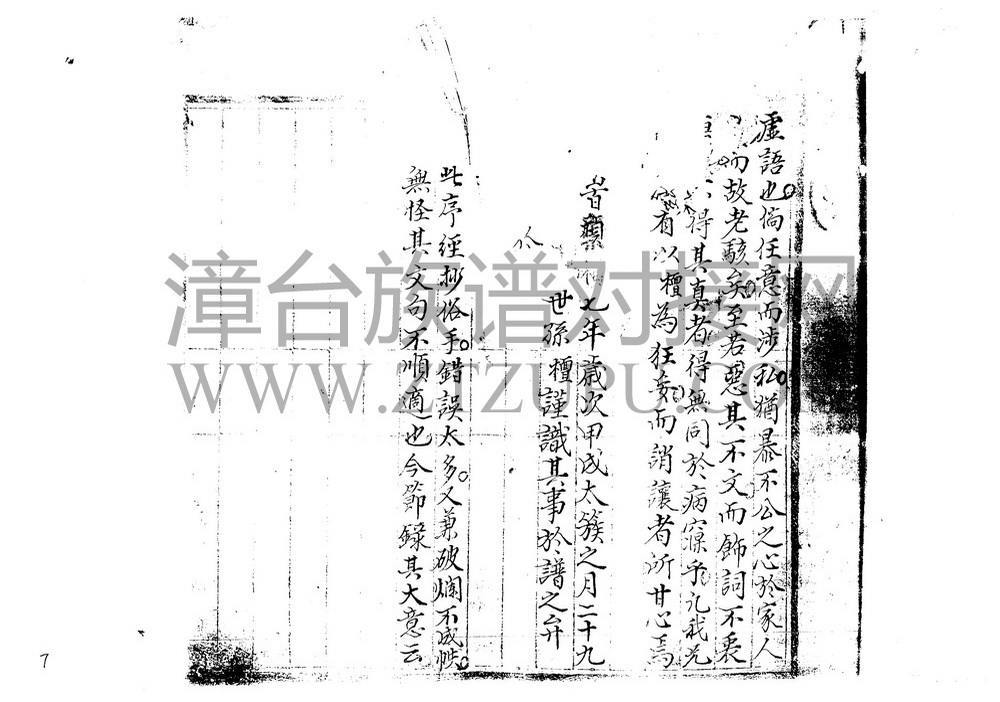 虛語也倘任意而涉私猶暴不公之心於家人
而故老駭矣至若惡其不文而飾詞不衷
得其真者得無同於病寐乎凡我兄
有以檀為狂妄而誚讓者所甘心焉
旹
七年歲次甲戌太簇之月二十九
世孫檀謹識其事於譜之弁
此序經抄俗手錯誤太多又兼破爛不成帙
無怪其文句不順適也今節錄其大意云
漳台族谱对接网
WWW.ZTZUPU.COM
7